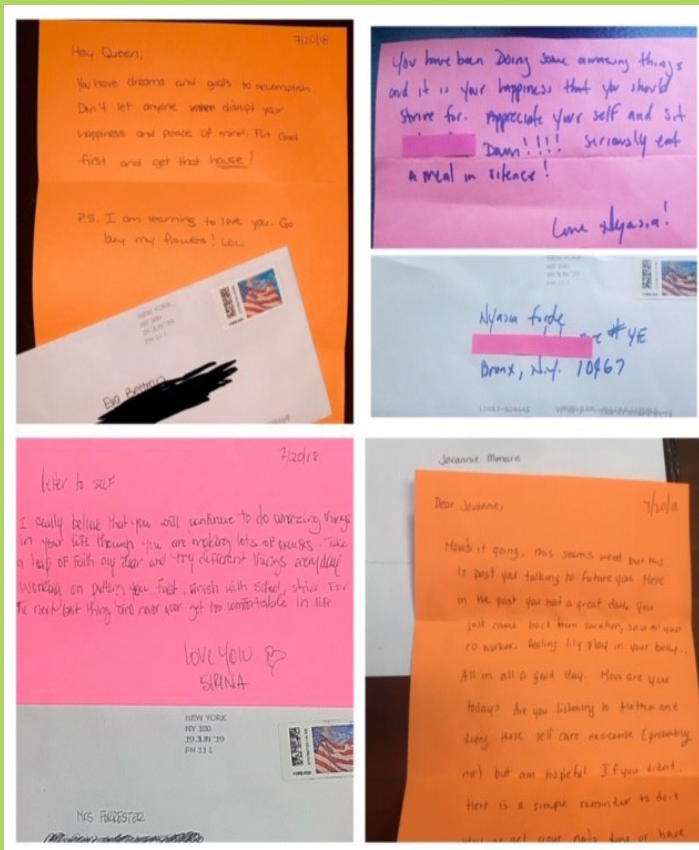 7/20/18
Hey Queen,
You have dreams and goals to accomplish.
Don't let anyone disrupt your
happiness and peace of mind. Put God
first and get that house!
P.S. I am learning to love you. Go
buy my flowers! LOL
NEW YORK
NY 100
19 JUN '19
PM 11 L
FOREVER
Eva
You have been Doing some amazing things
and it is your happiness that you should
strive for. Appreciate your self and sit
Down!!!! Seriously eat
a meal in silence!
Love Nyasia!
Nyasia Forde
# 4E
Bronx, N.Y. 10467
7/20/18
Letter to SELF
I really believe that you will continue to do amazing things
in your life though you are making lots of excuses. Take
a leap of faith my dear and try different things everyday
Working on putting you first, finish with school, strive For
the next best thing and never ever get too comfortable in life
LOVE YOU
SIRENA
NEW YORK
NY 100
19 JUN '19
PM 11 L
FOREVER
MRS FORRESTER
Jovannie
Dear Jovannie,
7/20/18
How's it going, this seems weird but this
is past you talking to future you. Here
in the past you had a great day, you
just came back from vacation, saw all your
co worker. feeling lily play in your belly..
All in all a good day. How are you
today? Are you listening to and
doing those self care exercise (probably
not) but am hopeful If you didnt..
Here is a simple reminder to do it
get your nails done or have